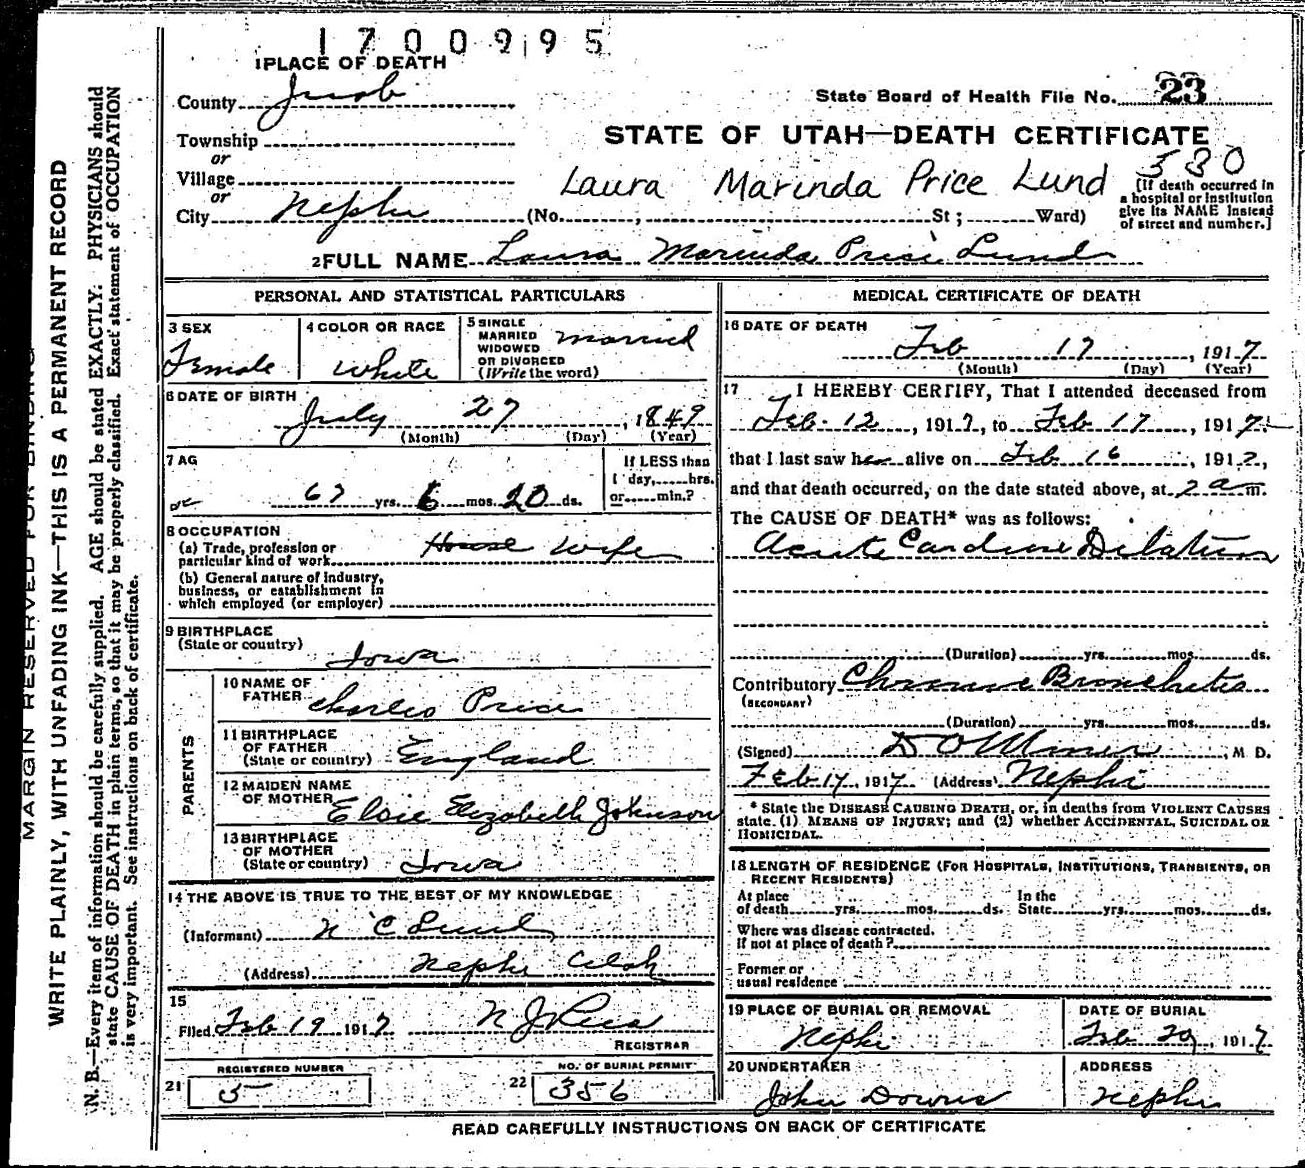 1700995
1 PLACE OF DEATH
County Juab
State Board of Health File No. 23
Township
or
Village
or
City Nephi (No. , St; Ward)
STATE OF UTAH—DEATH CERTIFICATE
530
Laura Marinda Price Lund
[If death occurred in
a hospital or institution
give its NAME instead
of street and number.]
2 FULL NAME Laura Marinda Price Lund
PERSONAL AND STATISTICAL PARTICULARS
3 SEX
Female
4 COLOR OR RACE
White
5 SINGLE
MARRIED
WIDOWED
OR DIVORCED
(Write the word)
married
6 DATE OF BIRTH
July 27, 1849
(Month) (Day) (Year)
7 AG
67 yrs. 6 mos. 20 ds.
If LESS than
1 day, hrs.
or min.?
8 OCCUPATION
(a) Trade, profession or
particular kind of work House wife
(b) General nature of industry,
business, or establishment in
which employed (or employer)
9 BIRTHPLACE
(State or country)
Iowa
PARENTS
10 NAME OF
FATHER Charles Price
11 BIRTHPLACE
OF FATHER
(State or country) England
12 MAIDEN NAME
OF MOTHER Elsie Elizabeth Johnson
13 BIRTHPLACE
OF MOTHER
(State or country) Iowa
14 THE ABOVE IS TRUE TO THE BEST OF MY KNOWLEDGE
(Informant) N C Lund
(Address) Nephi Utah
15
Filed Feb 19 1917 N J Rees
REGISTRAR
REGISTERED NUMBER
21 5
NO. OF BURIAL PERMIT
22 356
MEDICAL CERTIFICATE OF DEATH
16 DATE OF DEATH
Feb 17, 1917
(Month) (Day) (Year)
17 I HEREBY CERTIFY, That I attended deceased from
Feb. 12, 1917, to Feb 17, 1917
that I last saw her alive on Feb 16, 1917,
and that death occurred, on the date stated above, at 2 a m.
The CAUSE OF DEATH* was as follows:
Acute Cardiac Dilation
(Duration) yrs. mos. ds.
Contributory Chronic Bronchitis
(SECONDARY)
(Duration) yrs. mos. ds.
(Signed) , M D.
Feb 17, 1917 (Address) Nephi
* State the DISEASE CAUSING DEATH, or, in deaths from VIOLENT CAUSES
state (1) MEANS OF INJURY; and (2) whether ACCIDENTAL, SUICIDAL OR
HOMICIDAL.
18 LENGTH OF RESIDENCE (FOR HOSPITALS, INSTITUTIONS, TRANSIENTS, OR
RECENT RESIDENTS)
At place
of death yrs. mos. ds.
In the
State yrs. mos. ds.
Where was disease contracted,
if not at place of death?
Former or
usual residence
19 PLACE OF BURIAL OR REMOVAL
Nephi
DATE OF BURIAL
Feb 20, 1917
20 UNDERTAKER
John Downs
ADDRESS
Nephi
READ CAREFULLY INSTRUCTIONS ON BACK OF CERTIFICATE
MARGIN RESERVED FOR BINDING
WRITE PLAINLY, WITH UNFADING INK—THIS IS A PERMANENT RECORD
N. B.—Every item of information should be carefully supplied. AGE should be stated EXACTLY. PHYSICIANS should
state CAUSE OF DEATH in plain terms, so that it may be properly classified. Exact statement of OCCUPATION
is very important. See instructions on back of certificate.